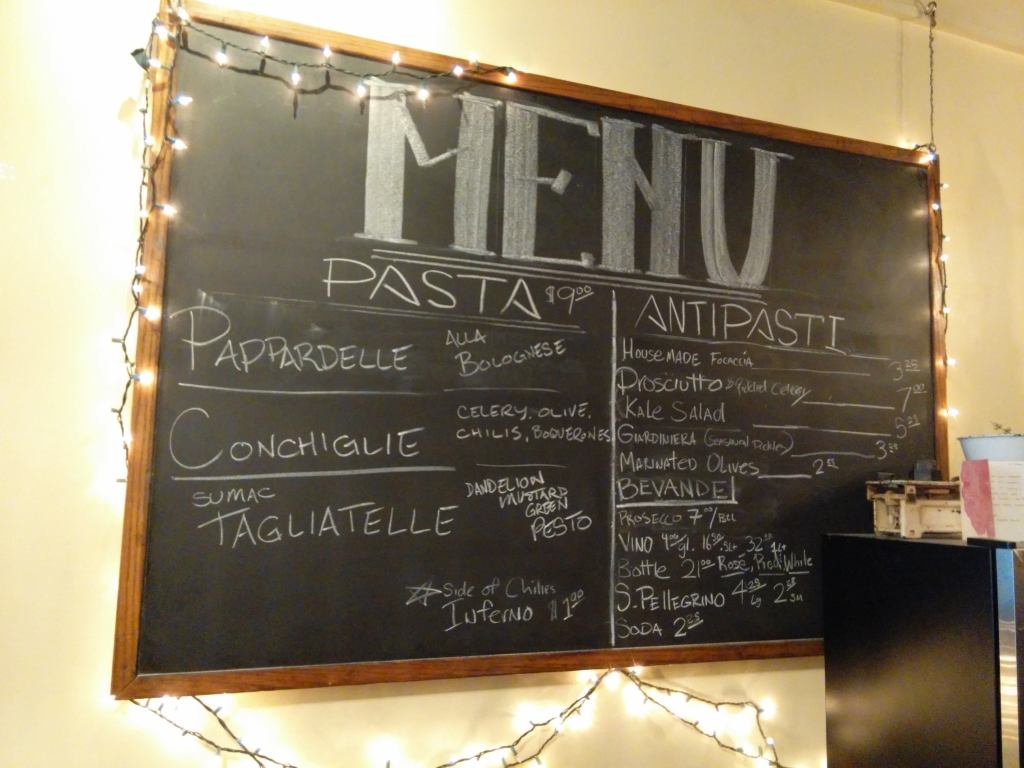 MENU
PASTA $9.00
PAPPARDELLE ALLA
BOLOGNESE
CONCHIGLIE CELERY, OLIVE,
CHILIS, BOQUERONES
SUMAC
TAGLIATELLE DANDELION
MUSTARD
GREEN
PESTO
Side of Chilies
INFERNO $1.00
ANTIPASTI
HOUSEMADE FOCACCIA 3.25
PROSCIUTTO & Pickled Celery 7.00
KALE SALAD
GIARDINIERA (SEASONAL PICKLES)
MARINATED OLIVES
BEVANDE
PROSECCO 7.00/
VINO 4.00 gl. 16.50 .5L 32.00 1L
Bottle 21.00 Rosé, Red, White
S. PELLEGRINO 4.25 Lg 2.25 SM
SODA